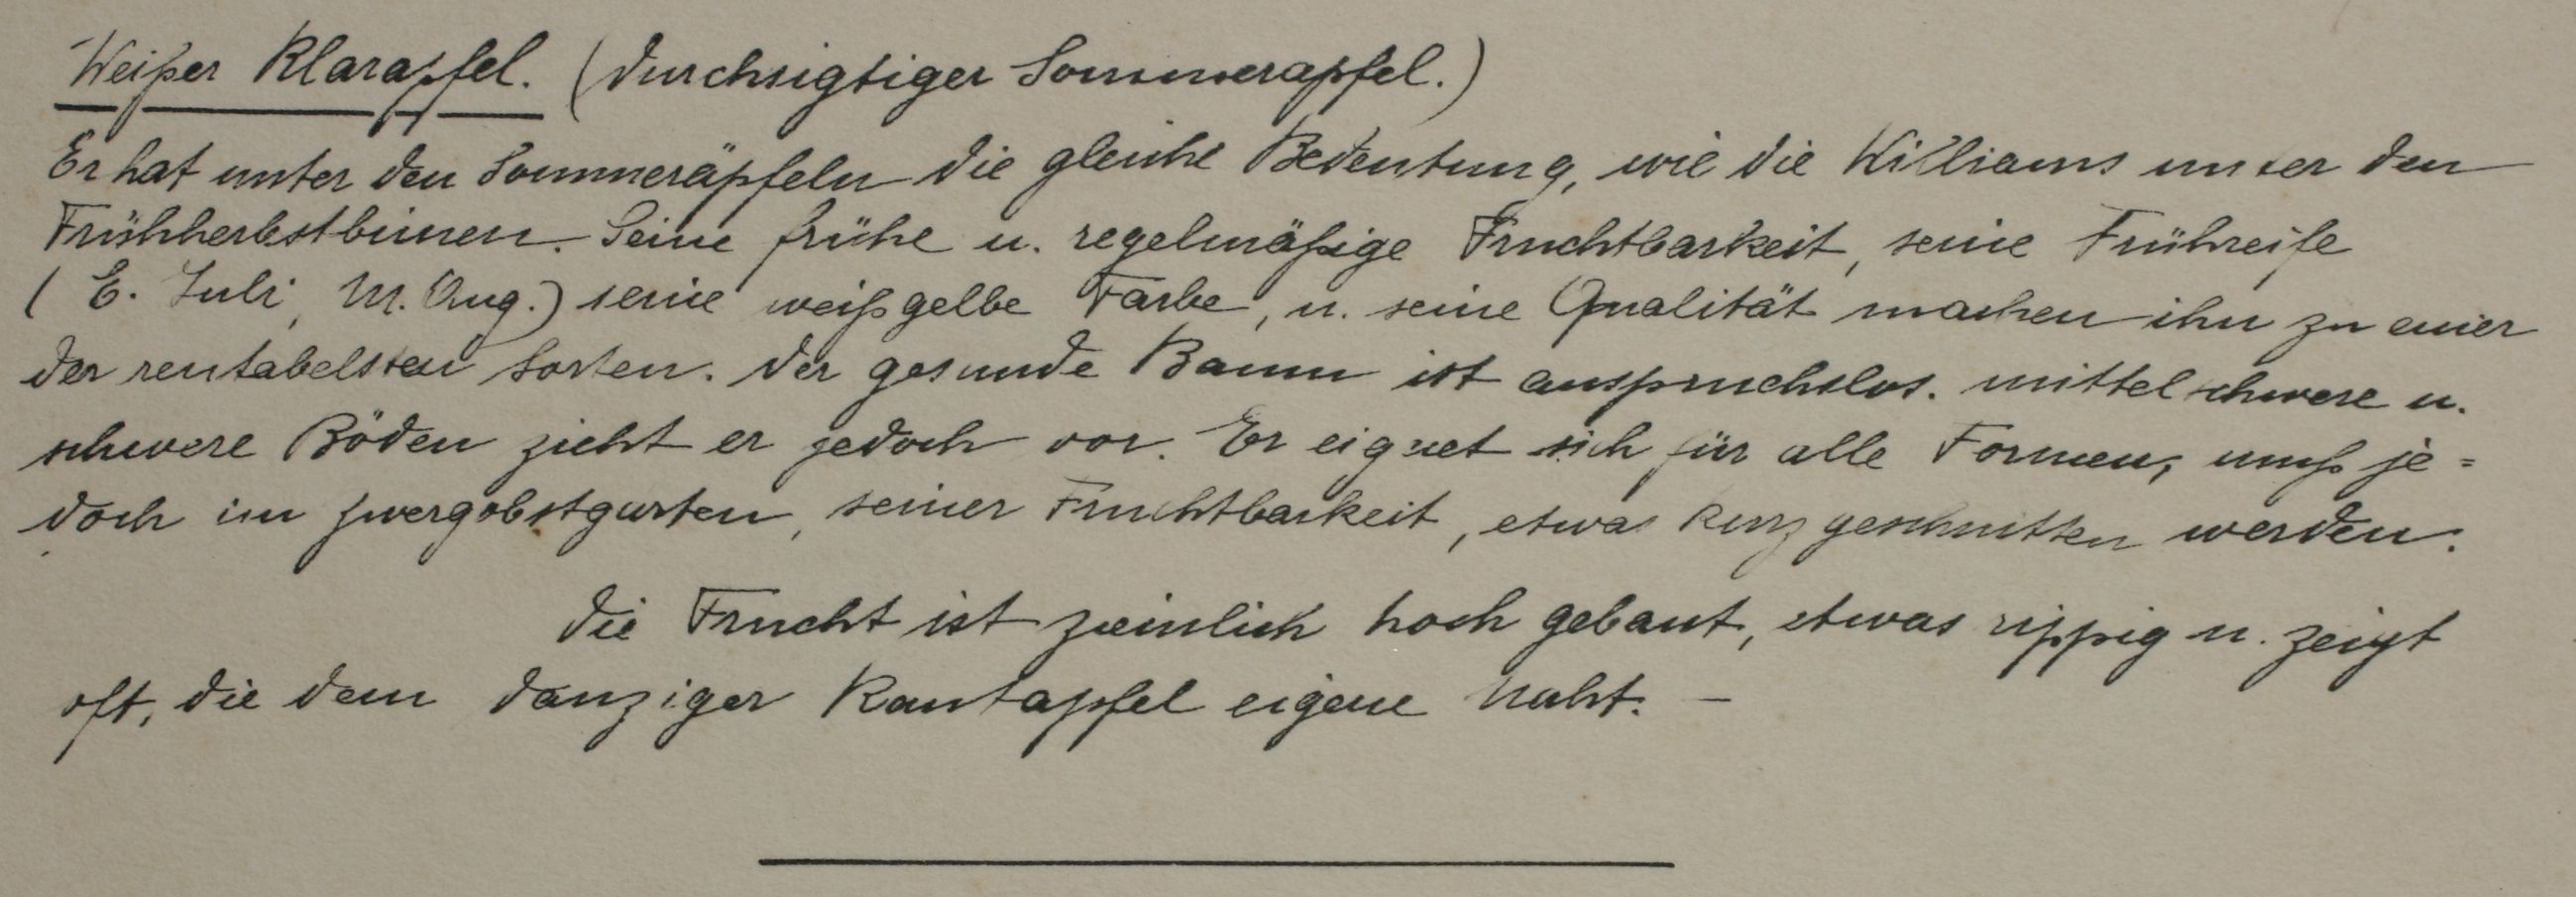 Weißer Klarapfel. (Durchsigtiger Sommerapfel.)
Er hat unter den Sommeräpfeln die gleiche Bedeutung, wie die Williams unter den
Frühherbstbirnen. Seine frühe u. regelmäßige Fruchtbarkeit, seine Frühreife
(E. Juli, M. Aug.) seine weißgelbe Farbe, u. seine Qualität machen ihn zu einer
der rentabelsten Sorten. Der gesunde Baum ist anspruchslos. mittelschwere u.
schwere Böden zieht er jedoch vor. Er eignet sich für alle Formen, muß je=
doch im Zwergobstgarten, seiner Fruchtbarkeit, etwas kurz geschnitten werden.
Die Frucht ist ziemlich hoch gebaut, etwas rippig u. zeigt
oft, die dem Danziger Kantapfel eigene Naht. –